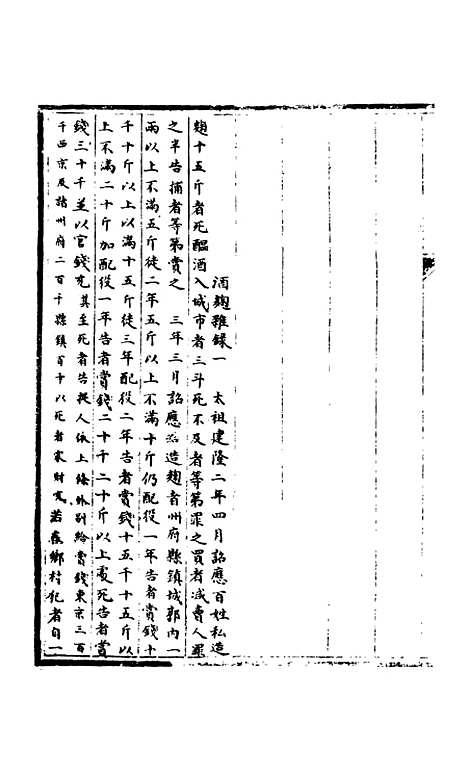 酒麹雜錄一　太祖建隆二年四月詔應百姓私造
麹十五斤者死醖酒入城市者三斗死不及者等第罪之買者减賣人罪
之半告捕者等第賞之　三年三月詔應造麹者州府縣鎮城郭內一
兩以上不滿五斤徒二年五斤以上不滿十斤仍配役一年告者賞錢十
千十斤以上以滿十五斤徒三年配役二年告者賞錢十五千十五斤以
上不滿二十斤加配役一年告者賞錢二十千二十斤以上處死告者賞
錢三十千並以官錢充其至死者告捉人依上條外別給賞錢東京三百
千西京及諸州府二百千縣鎮百千以死者家財充若在鄉村犯者自一